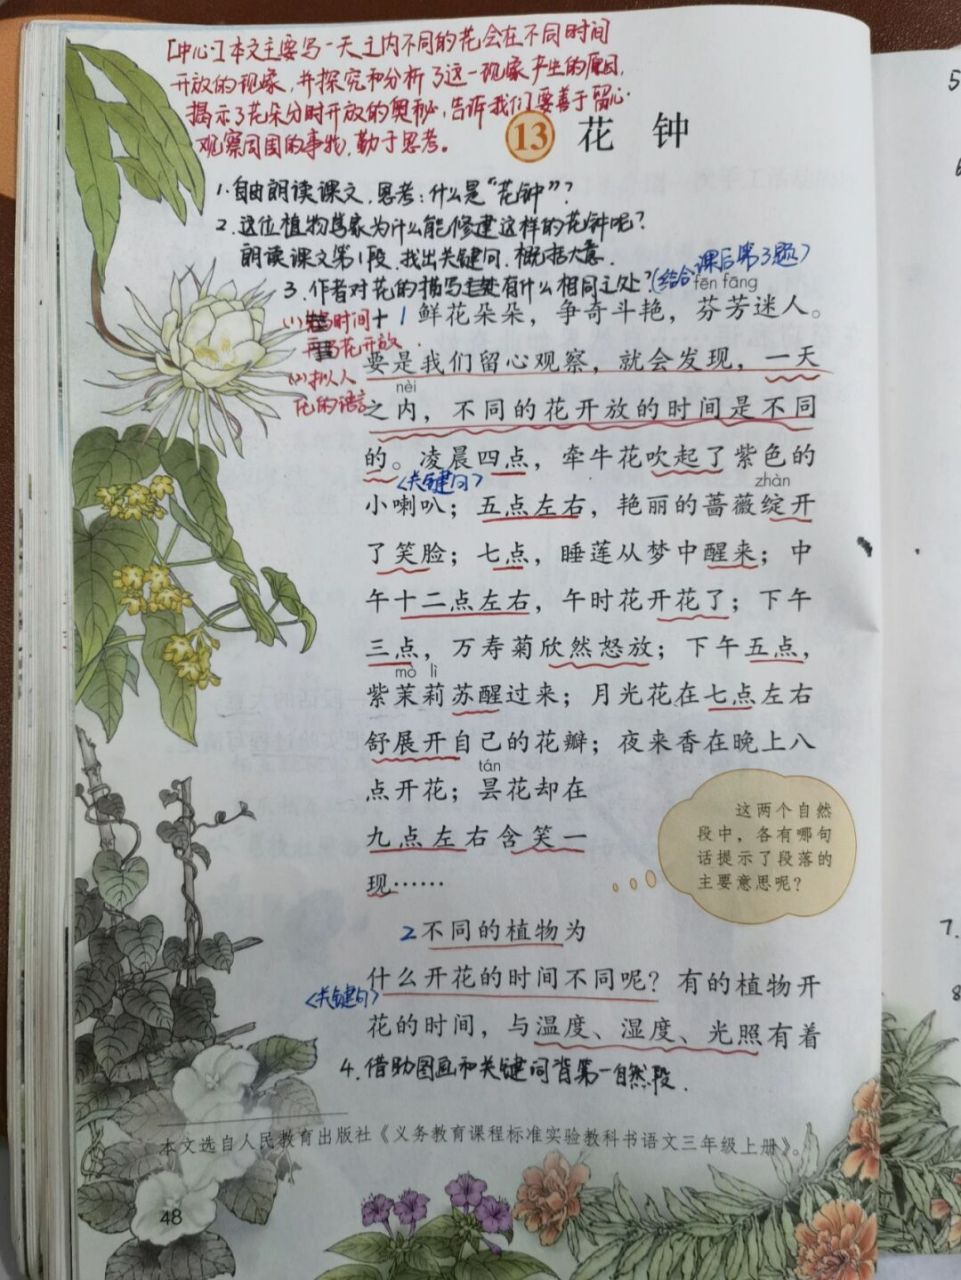 [中心]本文主要写一天之内不同的花会在不同时间
开放的现象,并探究和分析了这一现象产生的原因,
揭示了花朵分时开放的奥秘,告诉我们要善于留心
观察周围的事物,勤于思考。
13 花钟
1.自由朗读课文,思考:什么是“花钟”?
2.这位植物学家为什么能修建这样的花钟呢?
朗读课文第1段,找出关键句,概括大意.
3.作者对花的描写有什么相同之处?(结合课后第3题)
fēn fāng
(1)时间+
花开放
(2)拟人
花的语言
1鲜花朵朵,争奇斗艳,芬芳迷人。
要是我们留心观察,就会发现,一天
nèi
之内,不同的花开放的时间是不同
的。凌晨四点,牵牛花吹起了紫色的
<关键句>
zhàn
小喇叭;五点左右,艳丽的蔷薇绽开
了笑脸;七点,睡莲从梦中醒来;中
午十二点左右,午时花开花了;下午
三点,万寿菊欣然怒放;下午五点,
mò lì
紫茉莉苏醒过来;月光花在七点左右
舒展开自己的花瓣;夜来香在晚上八
tán
点开花;昙花却在
九点左右含笑一
现……
这两个自然
段中,各有哪句
话提示了段落的
主要意思呢?
2不同的植物为
什么开花的时间不同呢?有的植物开
<关键句>
花的时间,与温度、湿度、光照有着
4.借助图画和关键词背第一自然段.
本文选自人民教育出版社《义务教育课程标准实验教科书语文三年级上册》。
48
5
7.
8